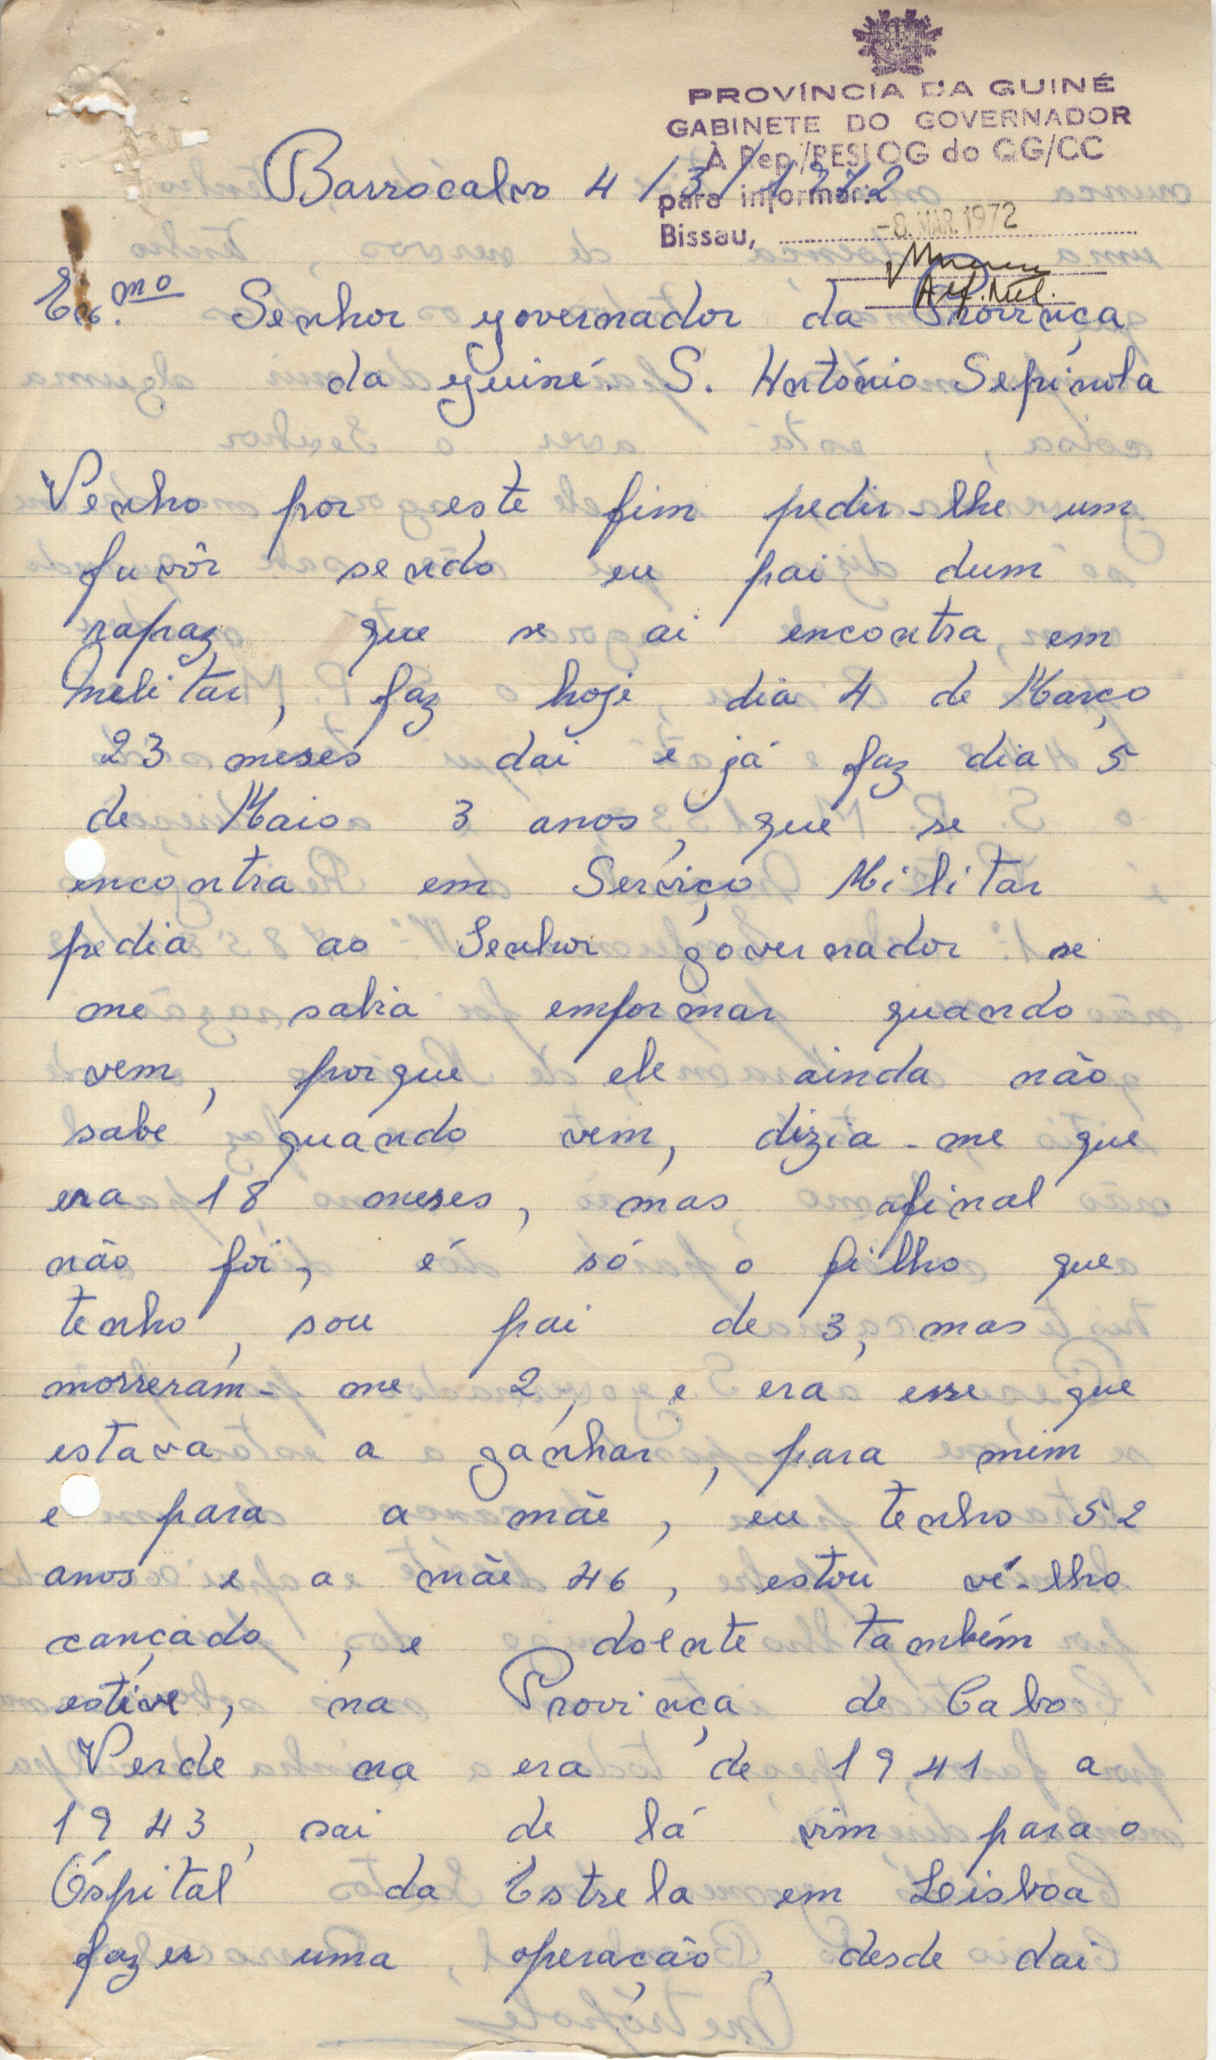 PROVÍNCIA DA GUINÉ
GABINETE DO GOVERNADOR
À Rep/PESLOG do QG/CC
para informar.
Bissau, -8. MAR. 1972
Barrócalvo 4/3/1972
Ex.mo Senhor governador da Provinça
da guiné. S. António Sepínola
Venho por este fim pedir-lhe um
favôr sendo eu pai dum
rapaz que se ai encontra, em
Melitar, faz hoje dia 4 de Março
23 meses dai e já faz dia 5
de Maio 3 anos, que se
encontra em Serviço Militar
pedia ao Senhor governador se
me sabia emformar quando
vem, porque ele ainda não
sabe quando vem, dizia-me que
era 18 meses, mas afinal
não foi, é só o filho que
tenho, sou pai de 3, mas
morreram-me 2, e era esse que
estava a ganhar, para mim
e para a mãe, eu tenho 52
anos e a mãe 46, estou vé-lho
cançado, e doente também
estive, na Provinça de Cabo
Verde na era de 1941 a
1943, sai de lá vim para o
Óspital da Estrela em Leisboa
fazer uma operação, desde dai